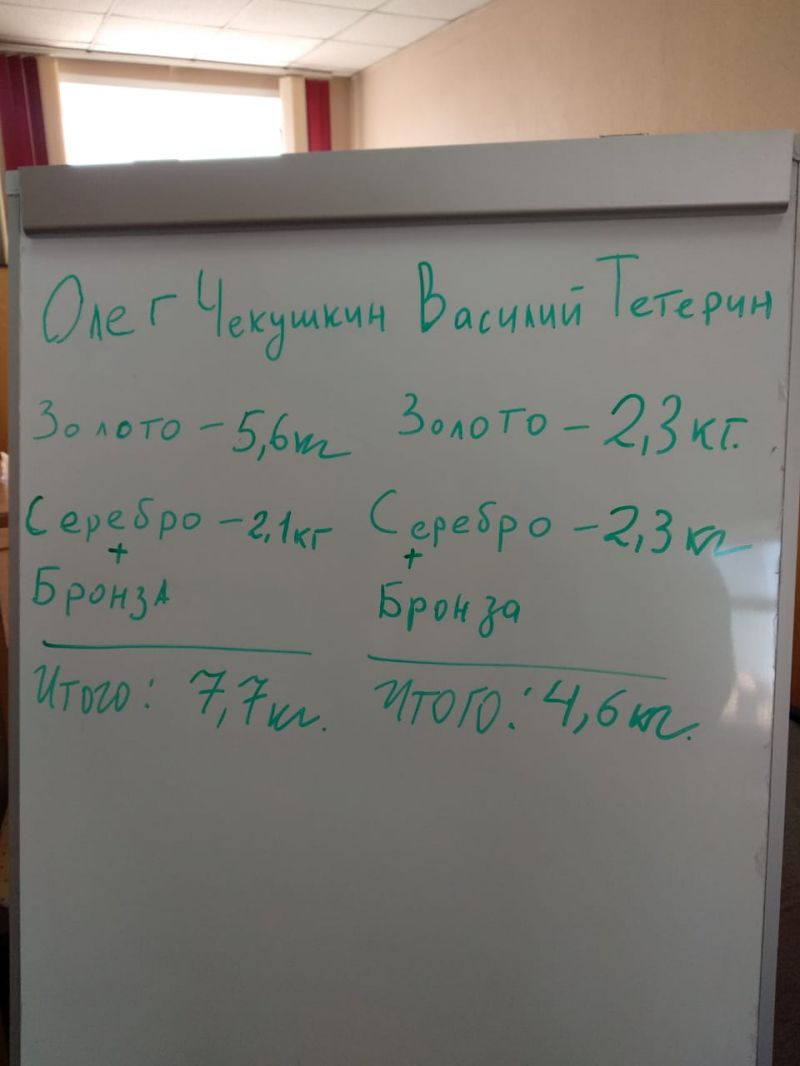 Олег Чекушкин Василий Тетерин
Золото – 5,6кг Золото – 2,3кг.
Серебро – 2,1кг Серебро – 2,3кг
+ +
Бронза Бронза
Итого: 7,7кг. Итого: 4,6кг.